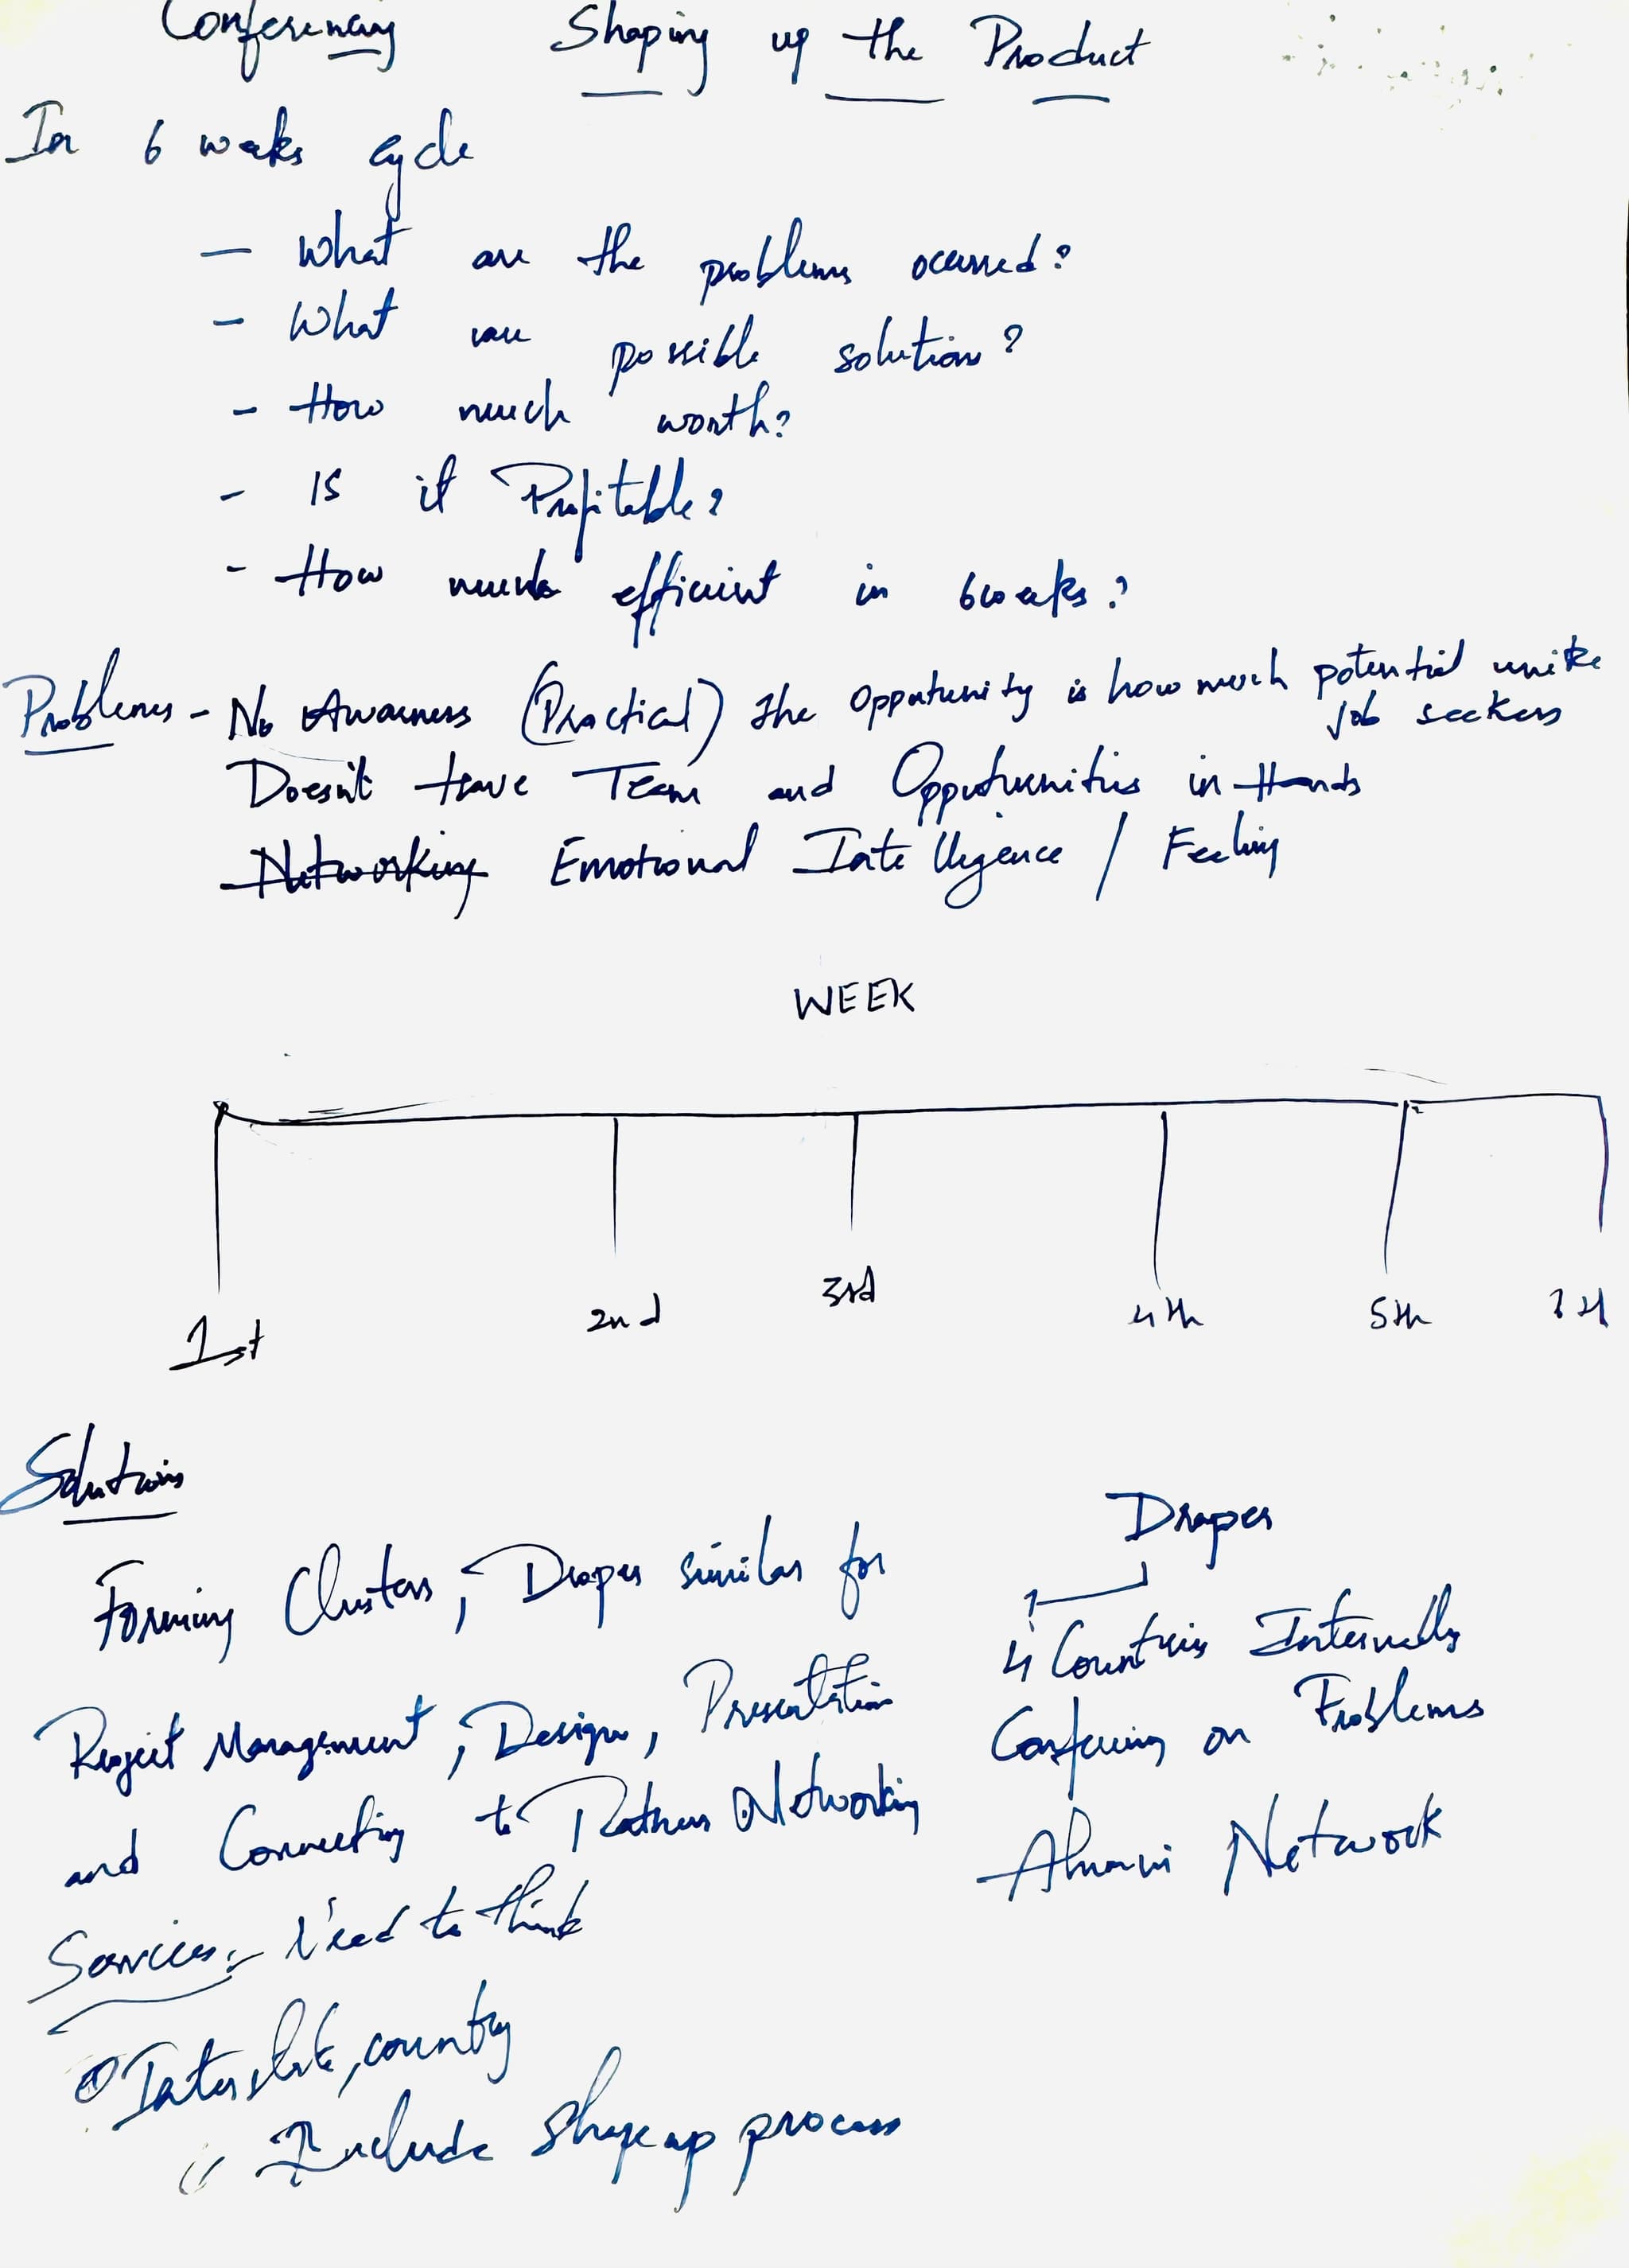 Conferencing Shaping up the Product
In 6 weeks cycle
- What are the problems ocurred?
- What are possible solution?
- How much worth?
- Is it Profitable?
- How much efficient in 6weeks?
Problems - No Awarness (Practical) the opportunity is how much potential unike
job seekers
Doesn't have Team and Opportunities in Hands
Networking Emotional Intelligence / Feeling
WEEK
1st 2nd 3rd 4th 5th
Solutions
Draper
Forming Clusters, Draper similar for
4 Countries Internally
Project Management, Design, Presentation
Confering on Problems
and Connecting to Networking
Alumni Network
Services:- Need to think
Interstate, country
" Include shapeup process